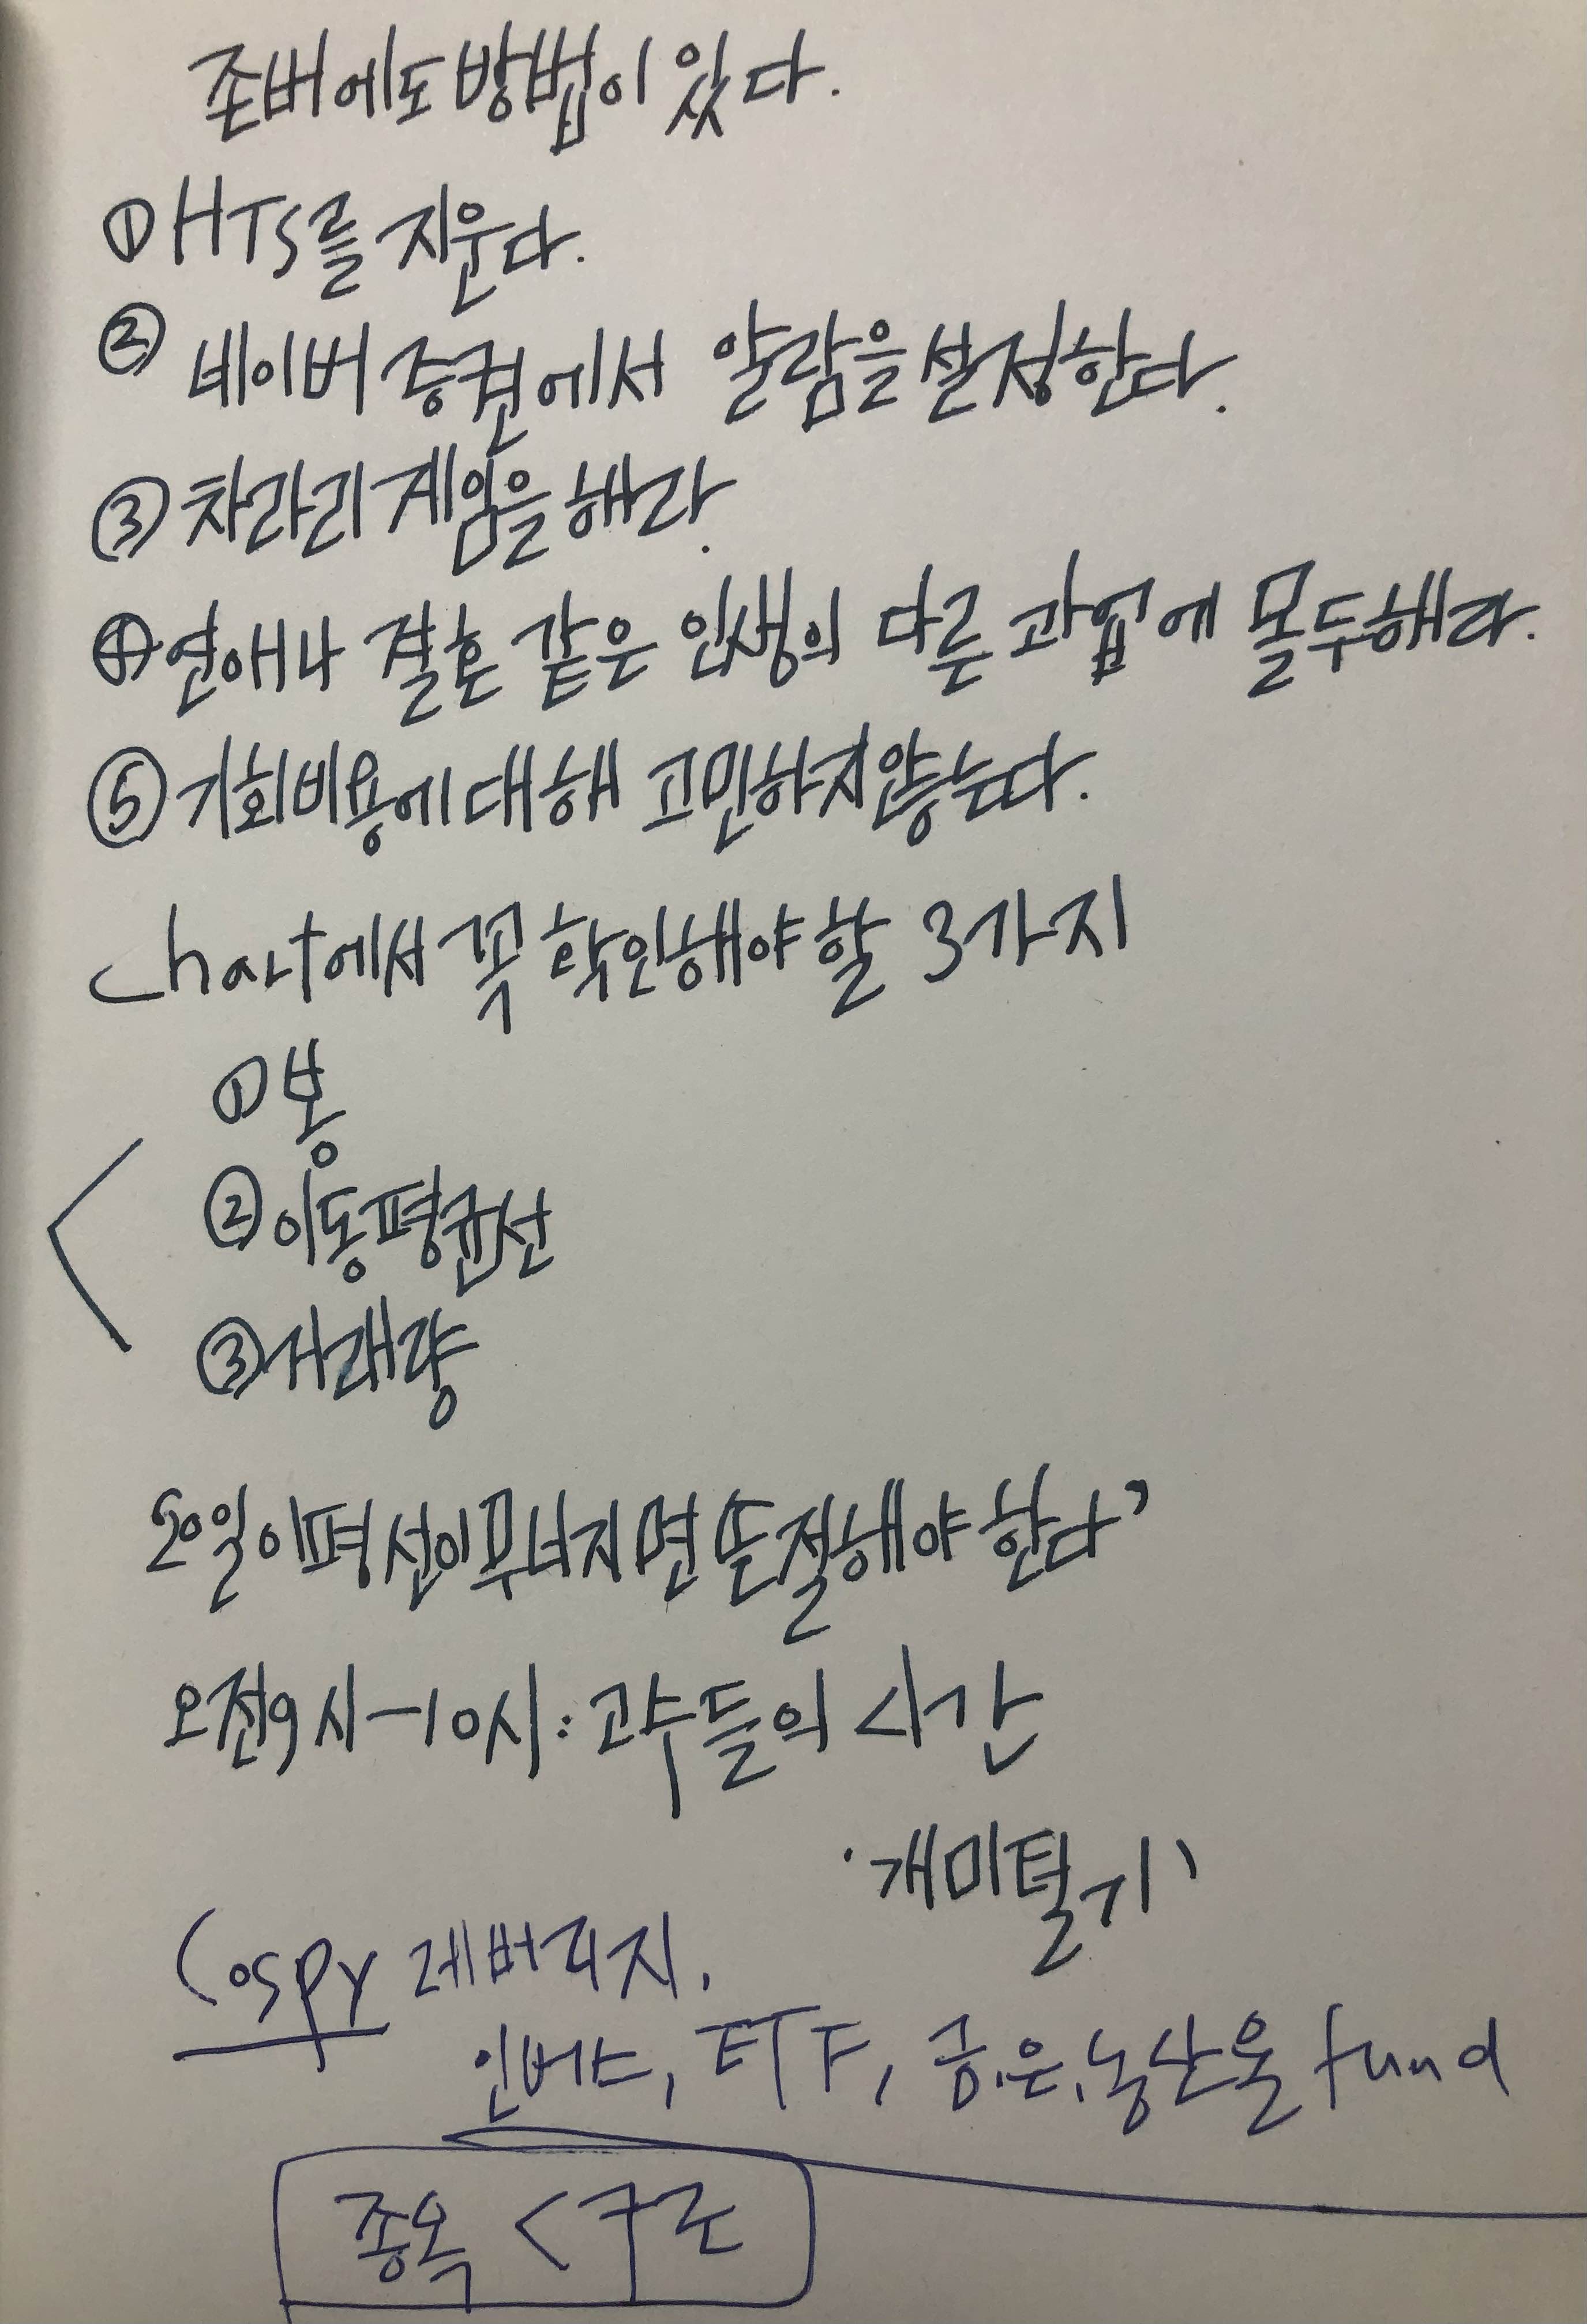 존버에도 방법이 있다.
① HTS를 지운다.
② 네이버 증권에서 알람을 설정한다.
③ 차라리 게임을 해라.
④ 연애나 결혼 같은 인생의 다른 과업에 몰두해라.
⑤ 기회비용에 대해 고민하지 않는다.
Chart에서 꼭 확인해야 할 3가지
① 봉
② 이동평균선
③ 거래량
20일 이평선이 무너지면 손절해야 한다'
오전9시-10시: 고수들의 시간
'개미털기'
Cospy 레버리지,
인버스, ETF, 금,은,농산물 fund
종목 <